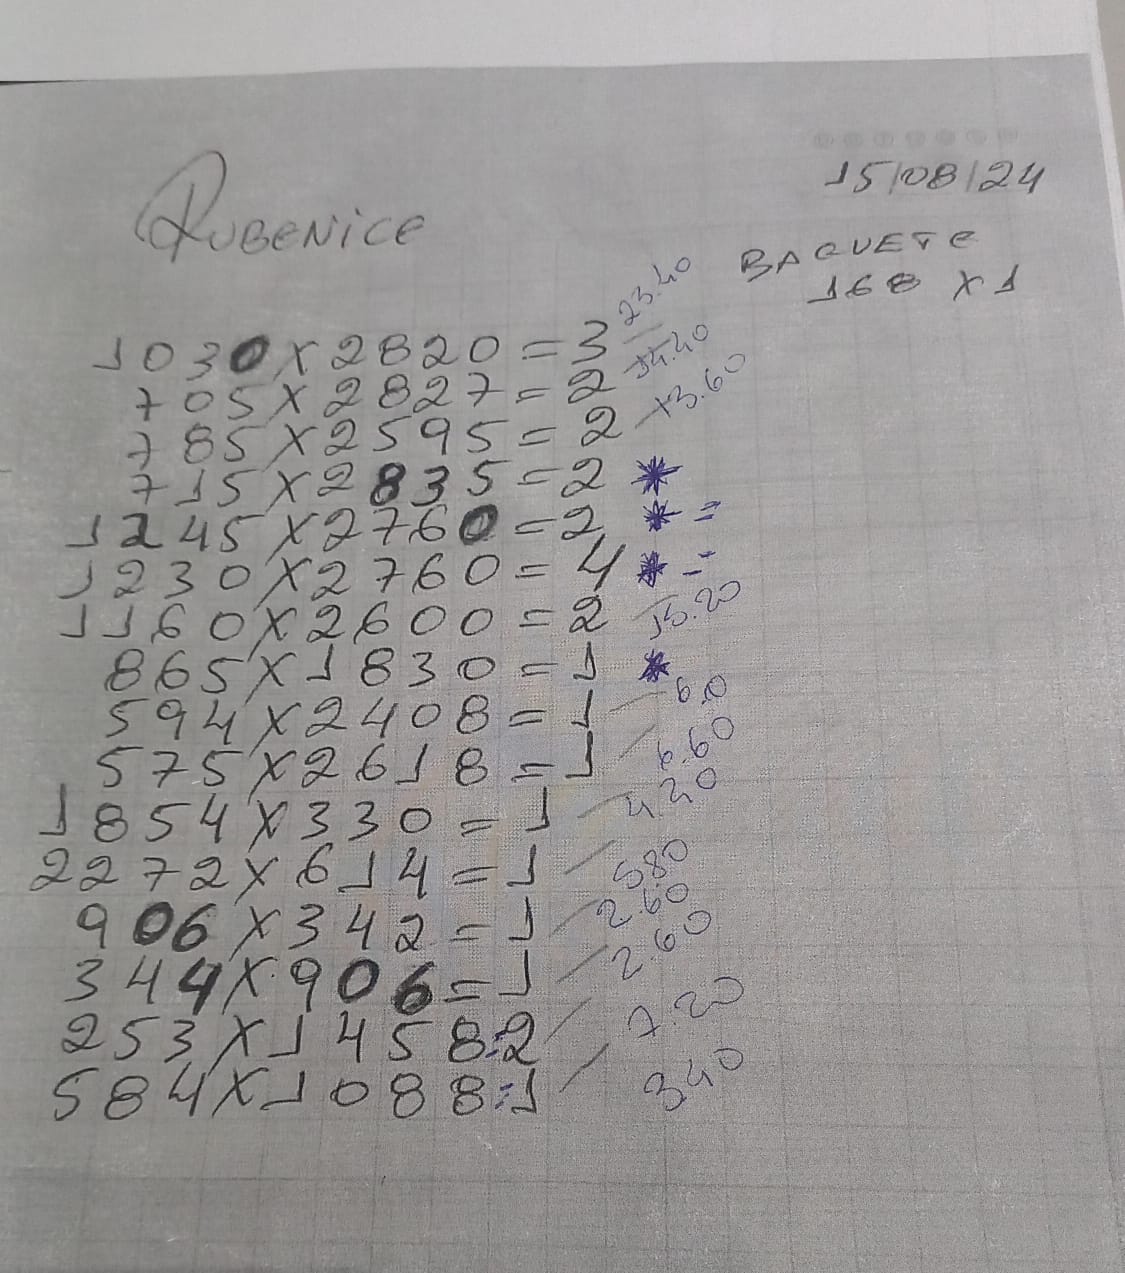 15/08/24
Rubenice
BAQUETE
168 X 1
1030 X 2820 = 3 23.40
705 X 2827 = 2 14.40
785 X 2595 = 2 13.60
715 X 2835 = 2 *
1245 X 2760 = 2 * =
1230 X 2760 = 4 * -
1160 X 2600 = 2 15.20
865 X 1830 = 1 *
594 X 2408 = 1 6.0
575 X 2618 = 1 6.60
1854 X 330 = 1 4.40
2272 X 614 = 1 5.80
906 X 342 = 1 2.60
344 X 906 = 1 2.60
253 X 1458 = 2 7.20
584 X 1088 = 1 3.40